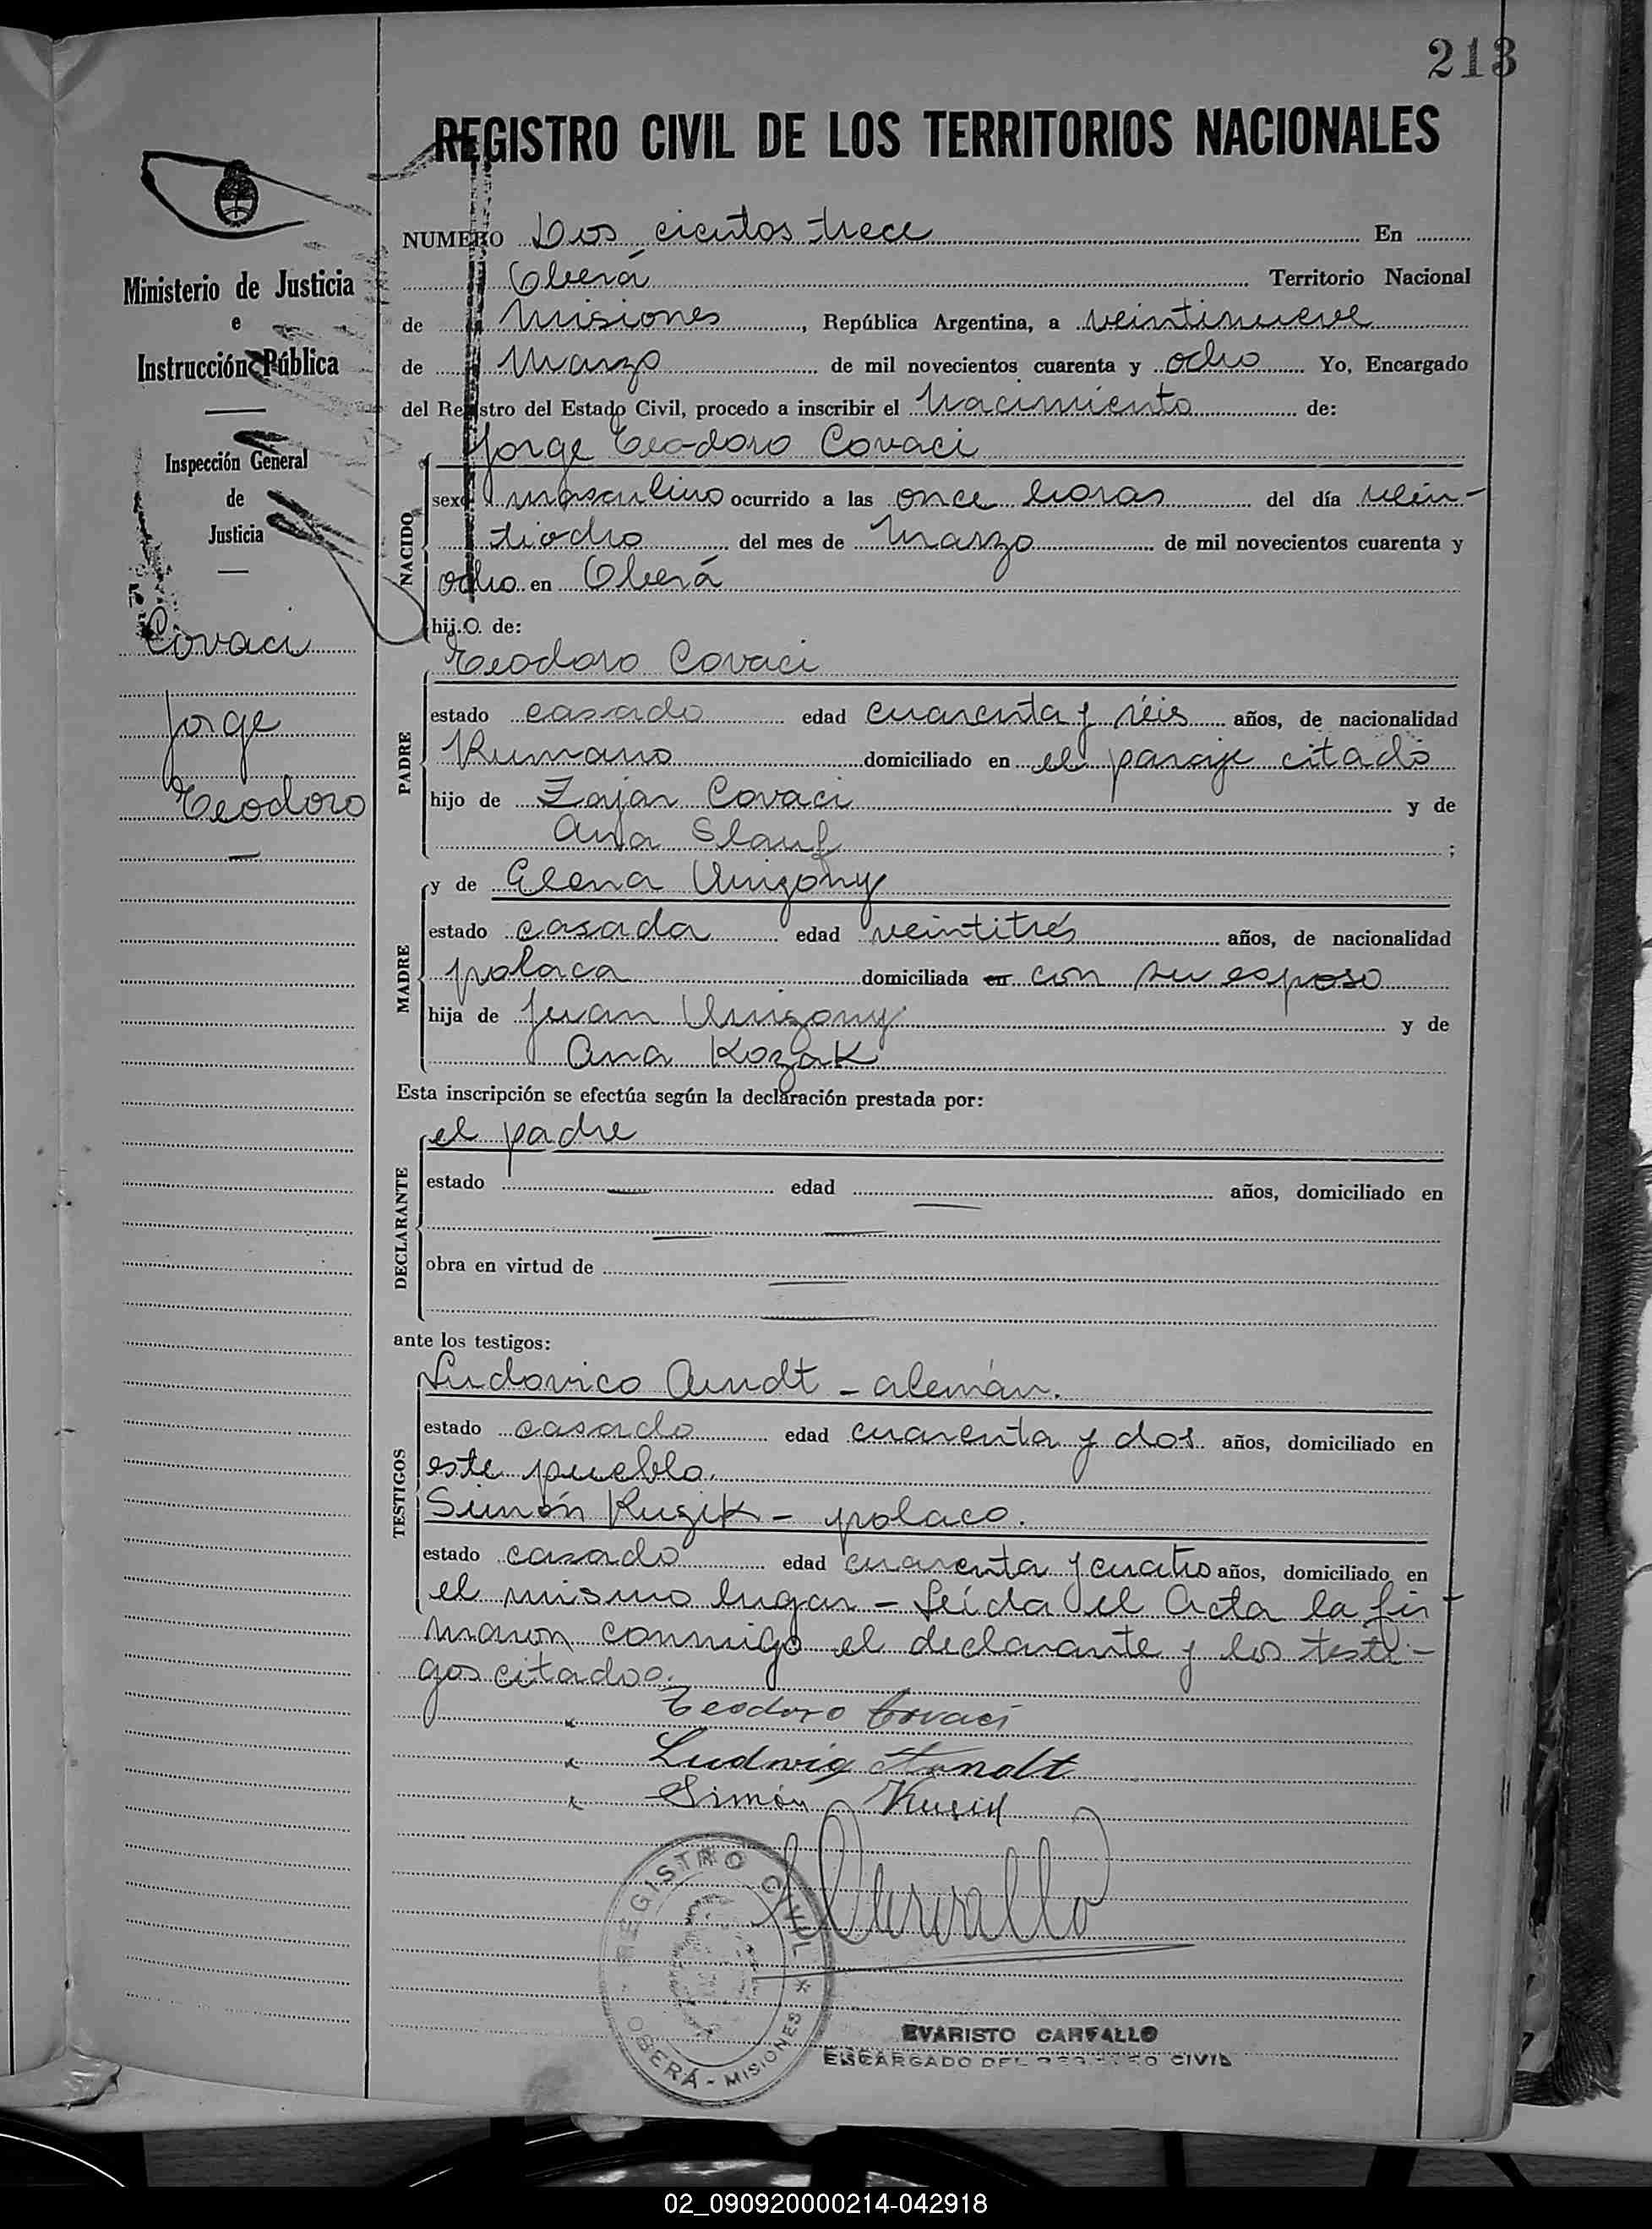 213
REGISTRO CIVIL DE LOS TERRITORIOS NACIONALES
Ministerio de Justicia
e
Instrucción Pública
Inspección General
de
Justicia
Covaci
Jorge
Teodoro
NUMERO Dos cientos trece En
Oberá Territorio Nacional
de Misiones, República Argentina, a veintinueve
de Marzo de mil novecientos cuarenta y ocho Yo, Encargado
del Registro del Estado Civil, procedo a inscribir el Nacimiento de:
Jorge Teodoro Covaci
NACIDO
sexo masculino ocurrido a las once horas del día vein-
tiocho del mes de Marzo de mil novecientos cuarenta y
ocho en Oberá
hijo de:
PADRE
Teodoro Covaci
estado casado edad cuarenta y séis años, de nacionalidad
Rumano domiciliado en el paraje citado
hijo de Zajar Covaci y de
Ana ;
MADRE
y de Elena
estado casada edad veintitrés años, de nacionalidad
polaca domiciliada en con su esposo
hija de Juan y de
Ana Kozak
Esta inscripción se efectúa según la declaración prestada por:
DECLARANTE
el padre
estado edad años, domiciliado en
obra en virtud de
ante los testigos:
TESTIGOS
Ludovico Arndt - alemán.
estado casado edad cuarenta y dos años, domiciliado en
este pueblo.
Simón Kuzik - polaco.
estado casado edad cuarenta y cuatro años, domiciliado en
el mismo lugar - Leída el Acta la fir-
maron conmigo el declarante y los testi-
gos citados.
Teodoro Covaci
Ludwig Arndt
Simón Kuzik
REGISTRO CIVIL * OBERÁ - MISIONES
EVARISTO CARVALLO
ENCARGADO DEL REGISTRO CIVIL
02_090920000214-042918